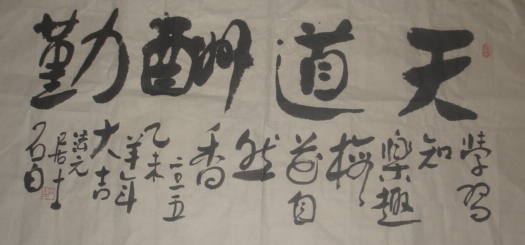 天道酬勤
學習
知
樂趣
梅
花自
然
香
二〇一五
乙未
羊年
大吉
浩元
居士
石自